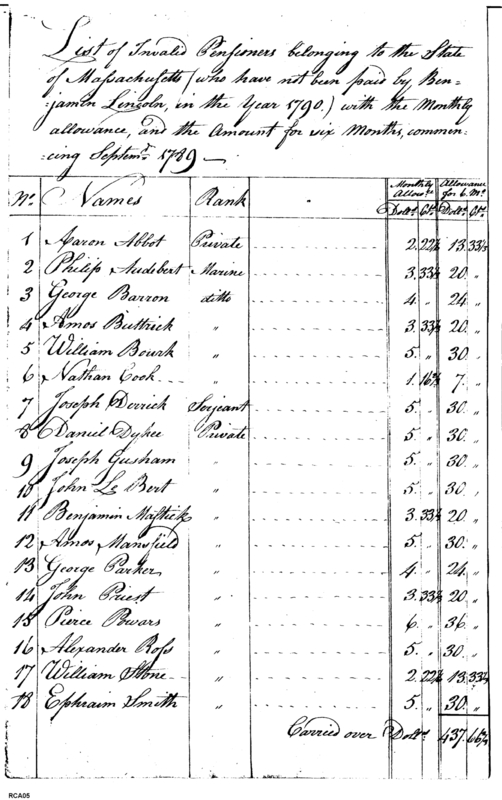 List of Invalid Pensioners belonging to the State
of Massachusetts (who have not been paid by Ben-
-jamin Lincoln, in the Year 1790.) with the Monthly
allowance, and the Amount for six Months, commen-
-cing Septemr. 1789 —
No. Names Rank Monthly Allowce. Allowance for 6. Ms.
Dolls. Cts. Dolls. Cts.
1 Aaron Abbot Private 2. 22⅔ 13. 33⅓
2 Philip Audebert Marine 3. 33⅓ 20. "
3 George Barron ditto 4. " 24. "
4 Amos Buttrick " 3. 33⅓ 20. "
5 William Bourk " 5. " 30. "
6 Nathan Cook " 1. 16⅔ 7. "
7 Joseph Derrick Serjeant 5. " 30. "
8 Daniel Dyke Private 5. " 30. "
9 Joseph Gusham " 5. " 30. "
10 John Le Bert " 5. " 30. "
11 Benjamin Mastick " 3. 33⅓ 20. "
12 Amos Mansfield " 5. " 30. "
13 George Parker " 4. " 24. "
14 John Priest " 3. 33⅓ 20. "
15 Pierce Powars " 6. " 36. "
16 Alexander Ross " 5. " 30. "
17 William Stone " 2. 22⅔ 13. 33⅓
18 Ephraim Smith " 5. " 30. "
Carried over Dolls. 437. 66⅔
RCA05